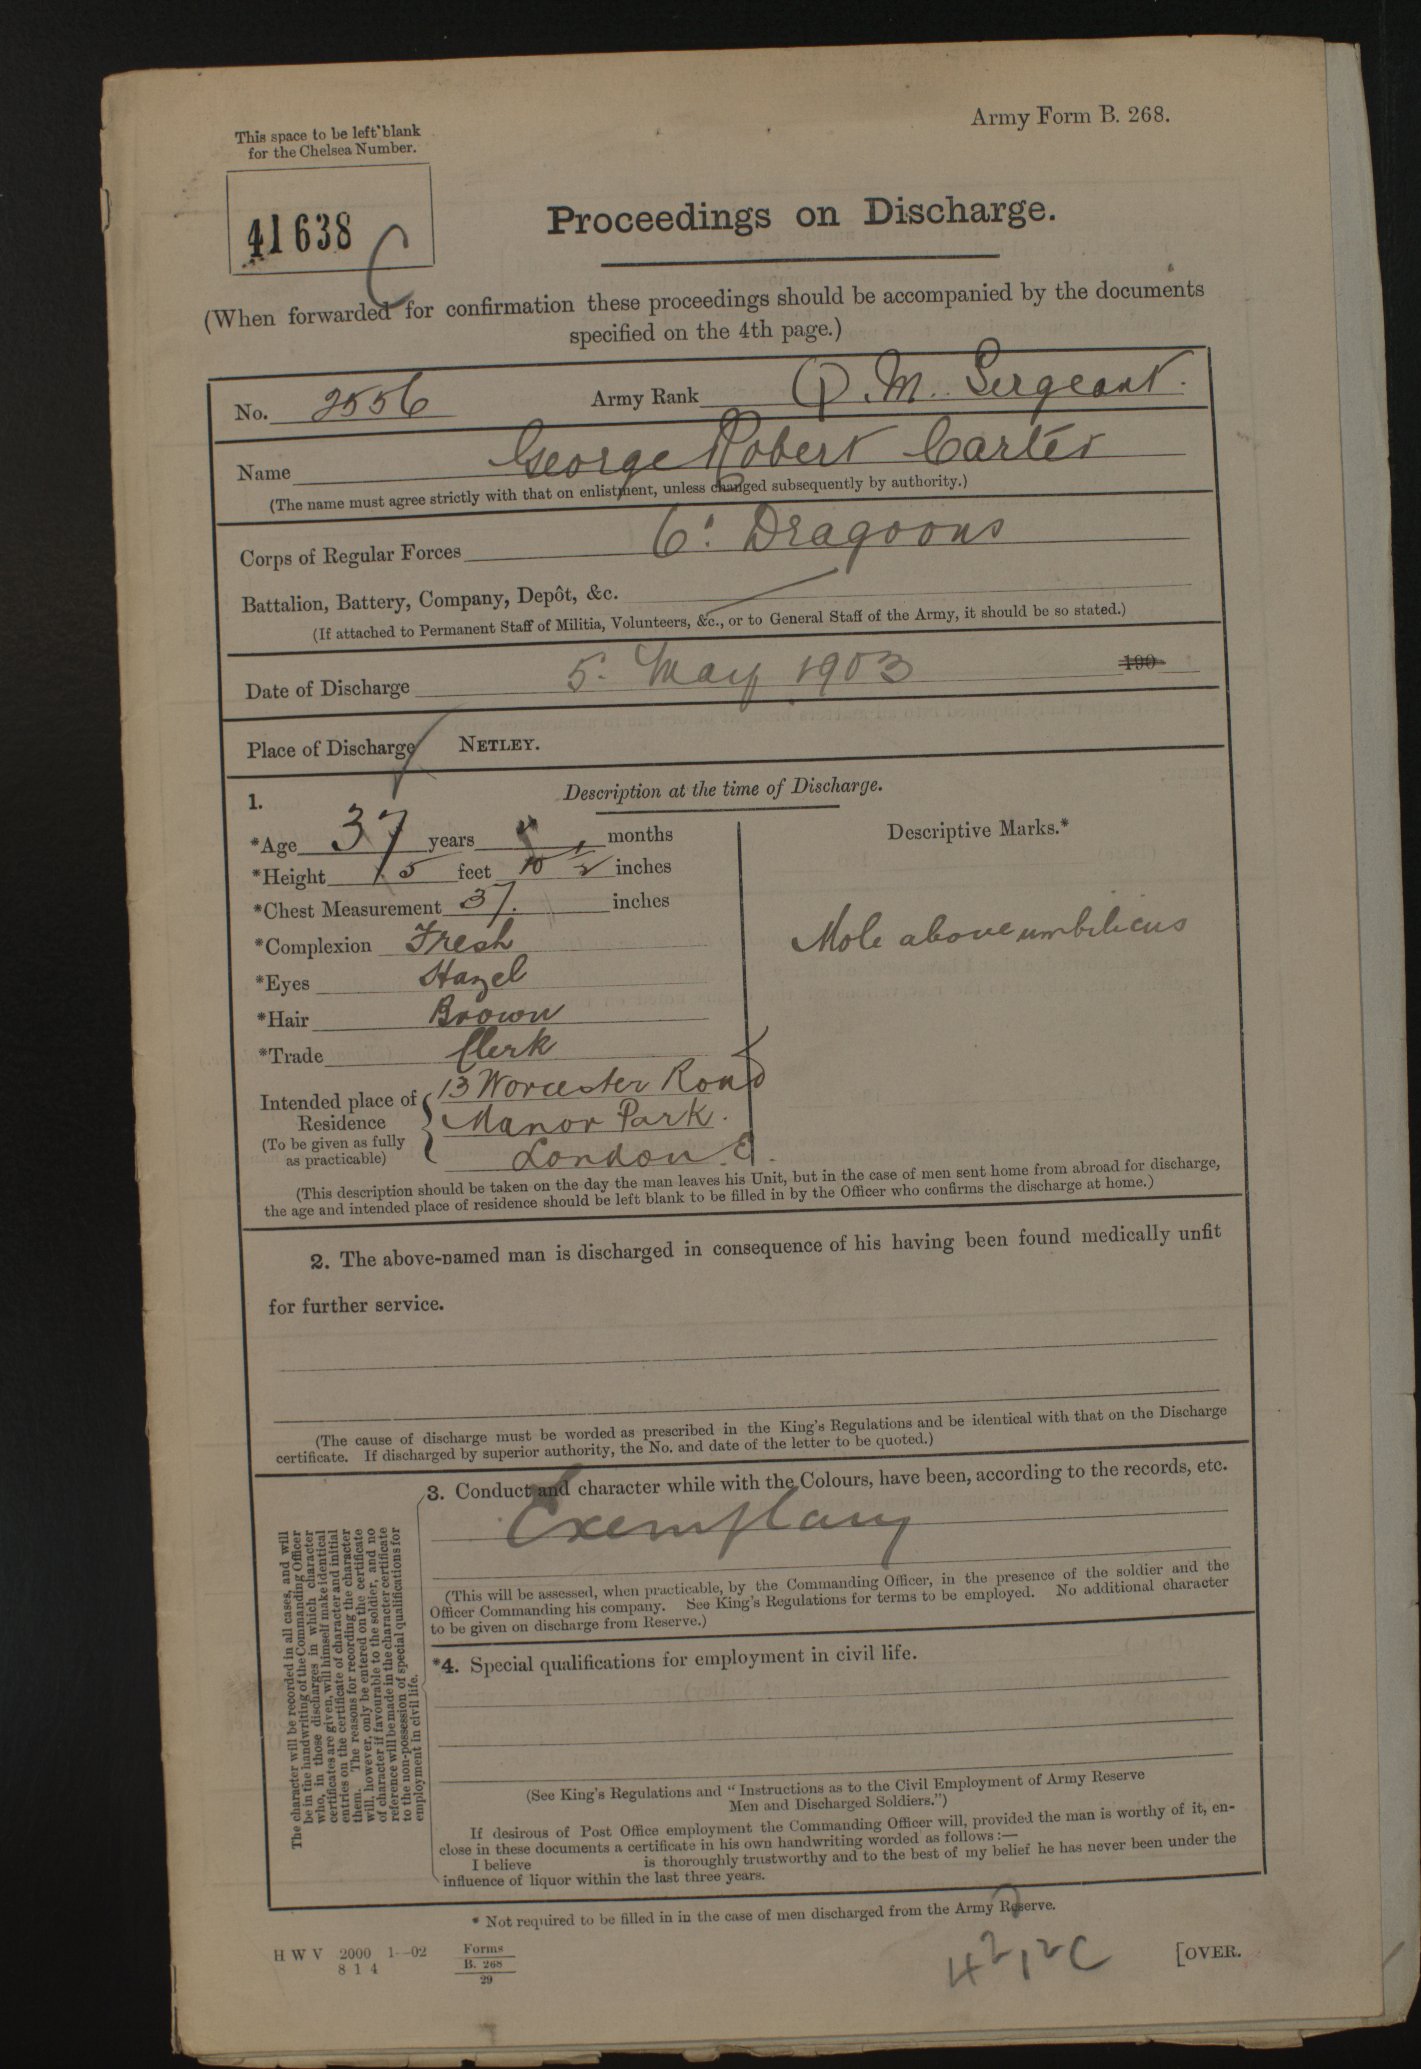 Army Form B. 268.
This space to be left blank
for the Chelsea Number.
41638
C
Proceedings on Discharge.
(When forwarded for confirmation these proceedings should be accompanied by the documents
specified on the 4th page.)
No. 2556 Army Rank Q. M. Sergeant.
Name George Robert Carter
(The name must agree strictly with that on enlistment, unless changed subsequently by authority.)
Corps of Regular Forces 6: Dragoons
Battalion, Battery, Company, Depôt, &c.
(If attached to Permanent Staff of Militia, Volunteers, &c., or to General Staff of the Army, it should be so stated.)
Date of Discharge 5. May 1903 190
Place of Discharge NETLEY.
1. Description at the time of Discharge.
*Age 37 years months
Descriptive Marks.*
*Height 5 feet 10 1/2 inches
*Chest Measurement 37. inches
*Complexion Fresh
Mole above umbilicus
*Eyes Hazel
*Hair Brown
*Trade Clerk
Intended place of Residence
(To be given as fully
as practicable)
13 Worcester Road
Manor Park.
London. E.
(This description should be taken on the day the man leaves his Unit, but in the case of men sent home from abroad for discharge,
the age and intended place of residence should be left blank to be filled in by the Officer who confirms the discharge at home.)
2. The above-named man is discharged in consequence of his having been found medically unfit
for further service.
(The cause of discharge must be worded as prescribed in the King's Regulations and be identical with that on the Discharge
certificate. If discharged by superior authority, the No. and date of the letter to be quoted.)
The character will be recorded in all cases, and will
be in the handwriting of the Commanding Officer
who, in those discharges in which character
certificates are given, will himself make identical
entries on the certificate of character and initial
them. The reasons for recording the character
will, however, only be entered on the certificate
of character if favourable to the soldier, and no
reference will be made in the character certificate
to the non-possession of special qualifications for
employment in civil life.
3. Conduct and character while with the Colours, have been, according to the records, etc.
Exemplary
(This will be assessed, when practicable, by the Commanding Officer, in the presence of the soldier and the
Officer Commanding his company. See King's Regulations for terms to be employed. No additional character
to be given on discharge from Reserve.)
*4. Special qualifications for employment in civil life.
(See King's Regulations and "Instructions as to the Civil Employment of Army Reserve
Men and Discharged Soldiers.")
If desirous of Post Office employment the Commanding Officer will, provided the man is worthy of it, en-
close in these documents a certificate in his own handwriting worded as follows:—
I believe is thoroughly trustworthy and to the best of my belief he has never been under the
influence of liquor within the last three years.
* Not required to be filled in in the case of men discharged from the Army Reserve.
H W V 2000 1—02
8 1 4
Forms
B. 268
29
[OVER.